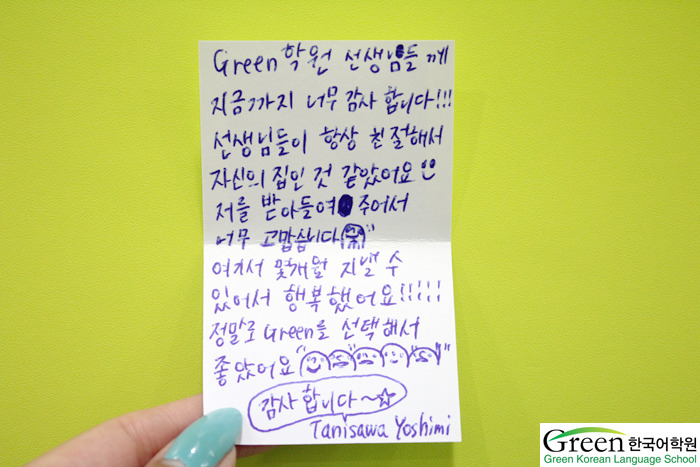 Green 학원 선생님들께
지금까지 너무 감사 합니다!!!
선생님들이 항상 친절해서
자신의 집인 것 같았어요
저를 받아들여 주어서
너무 고맙습니다
여기서 몇개월 지낼 수
있어서 행복했어요!!!!!
정말로 Green를 선택해서
좋았어요
감사 합니다~☆
Tanisawa Yoshimi
Green 한국어학원
Green Korean Language School